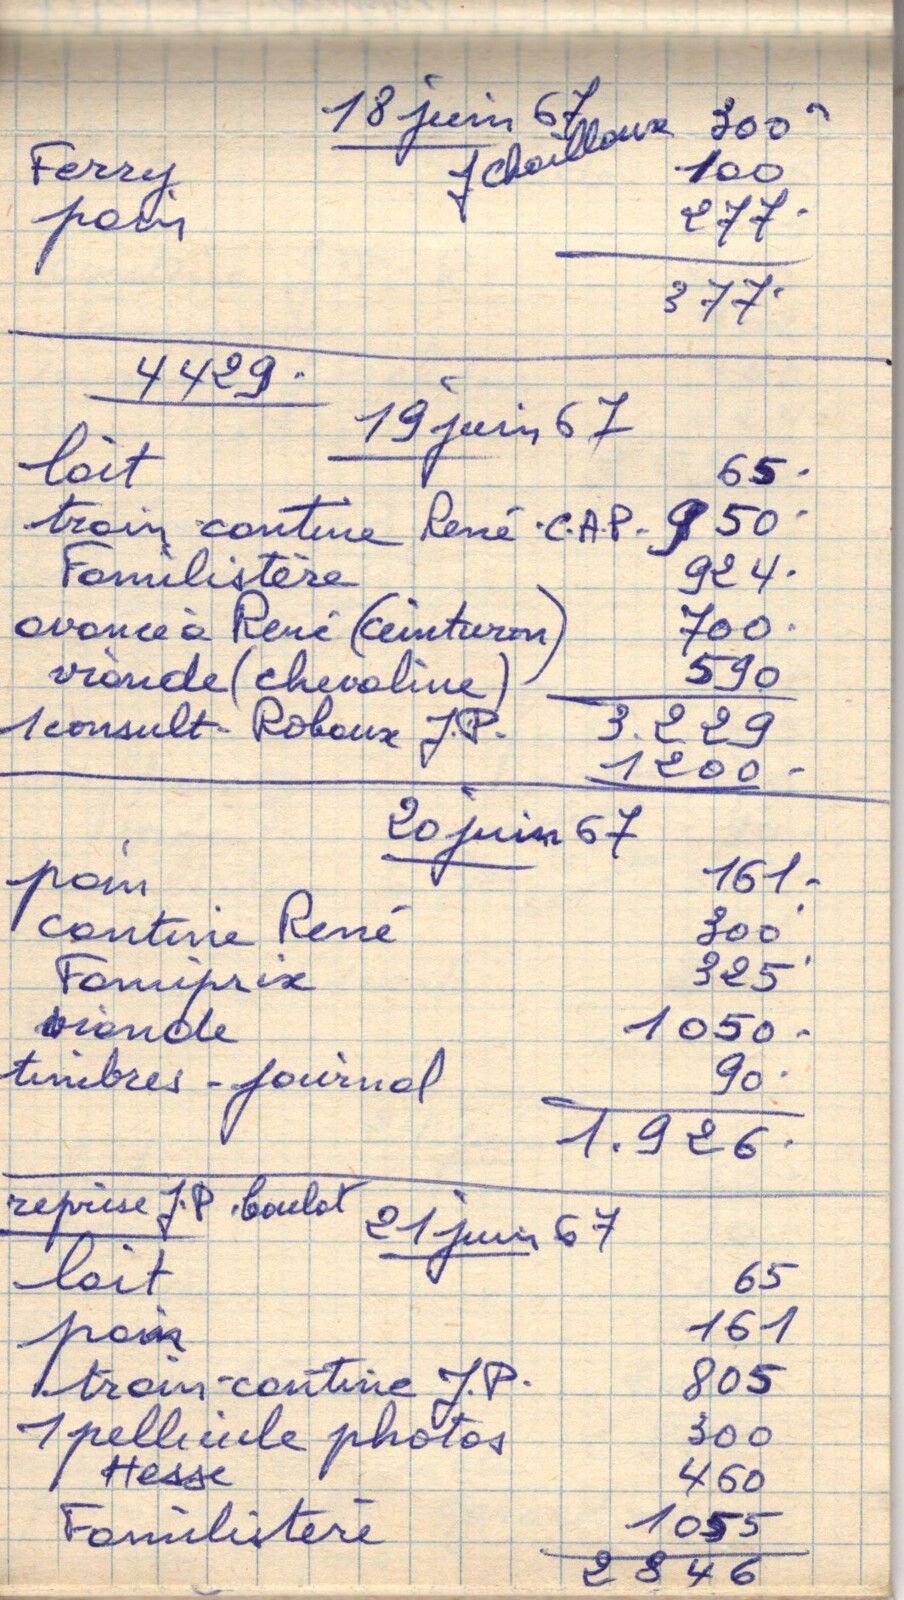 18 juin 67
J Chailloux 300
Ferry 100
pain 277.
377.
4429.
19 juin 67
lait 65.
train cantine René C.A.P. 950.
Familistère 924.
avance à René (ceinturon) 700.
viande (chevaline) 590
3.229
1 consult. Robaux J.P. 1200.
20 juin 67
pain 161.
cantine René 300
Famiprix 325
viande 1050.
timbres - journal 90.
1.926.
reprise J.P. boulot
21 juin 67
lait 65
pain 161
train-cantine J.P. 805
1 pellicule photos 300
Hesse 460
Familistère 1055
2846